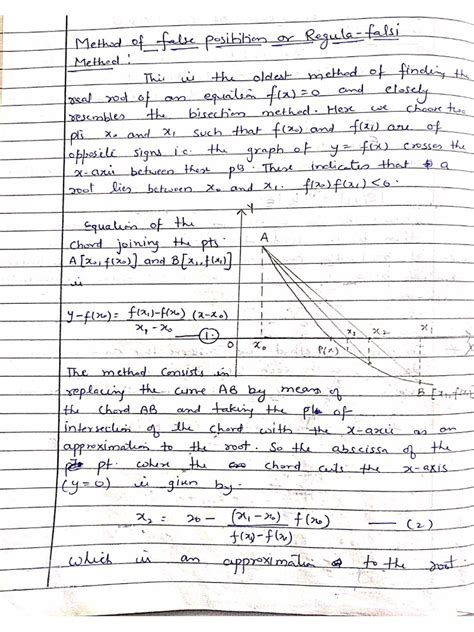 Method of false position or Regula-falsi
Method :
This is the oldest method of finding the
real root of an equation f(x)=0 and closely
resembles the bisection method. Here we choose two
pts x₀ and x₁ such that f(x₀) and f(x₁) are of
opposite signs i.e. the graph of y = f(x) crosses the
x-axis between these pts. These indicates that a
root lies between x₀ and x₁. f(x₀)f(x₁)<0.
Equation of the
chord joining the pts
A[x₀,f(x₀)] and B[x₁,f(x₁)]
is
y-f(x₀) = f(x₁)-f(x₀) / x₁-x₀ (x-x₀)
①
Y
A
O x₀ P(x) x₃ x₂ x₁
B [x₁,f(x
The method consists in
replacing the curve AB by means of
the chord AB and taking the pt of
intersection of the chord with the x-axis as an
approximation to the root. So the abscissa of the
pt. where the chord cuts the x-axis
(y=0) is given by.
x₂ = x₀ - (x₁-x₀) / f(x₁)-f(x₀) f(x₀) — (2)
which is an approximation to the root.